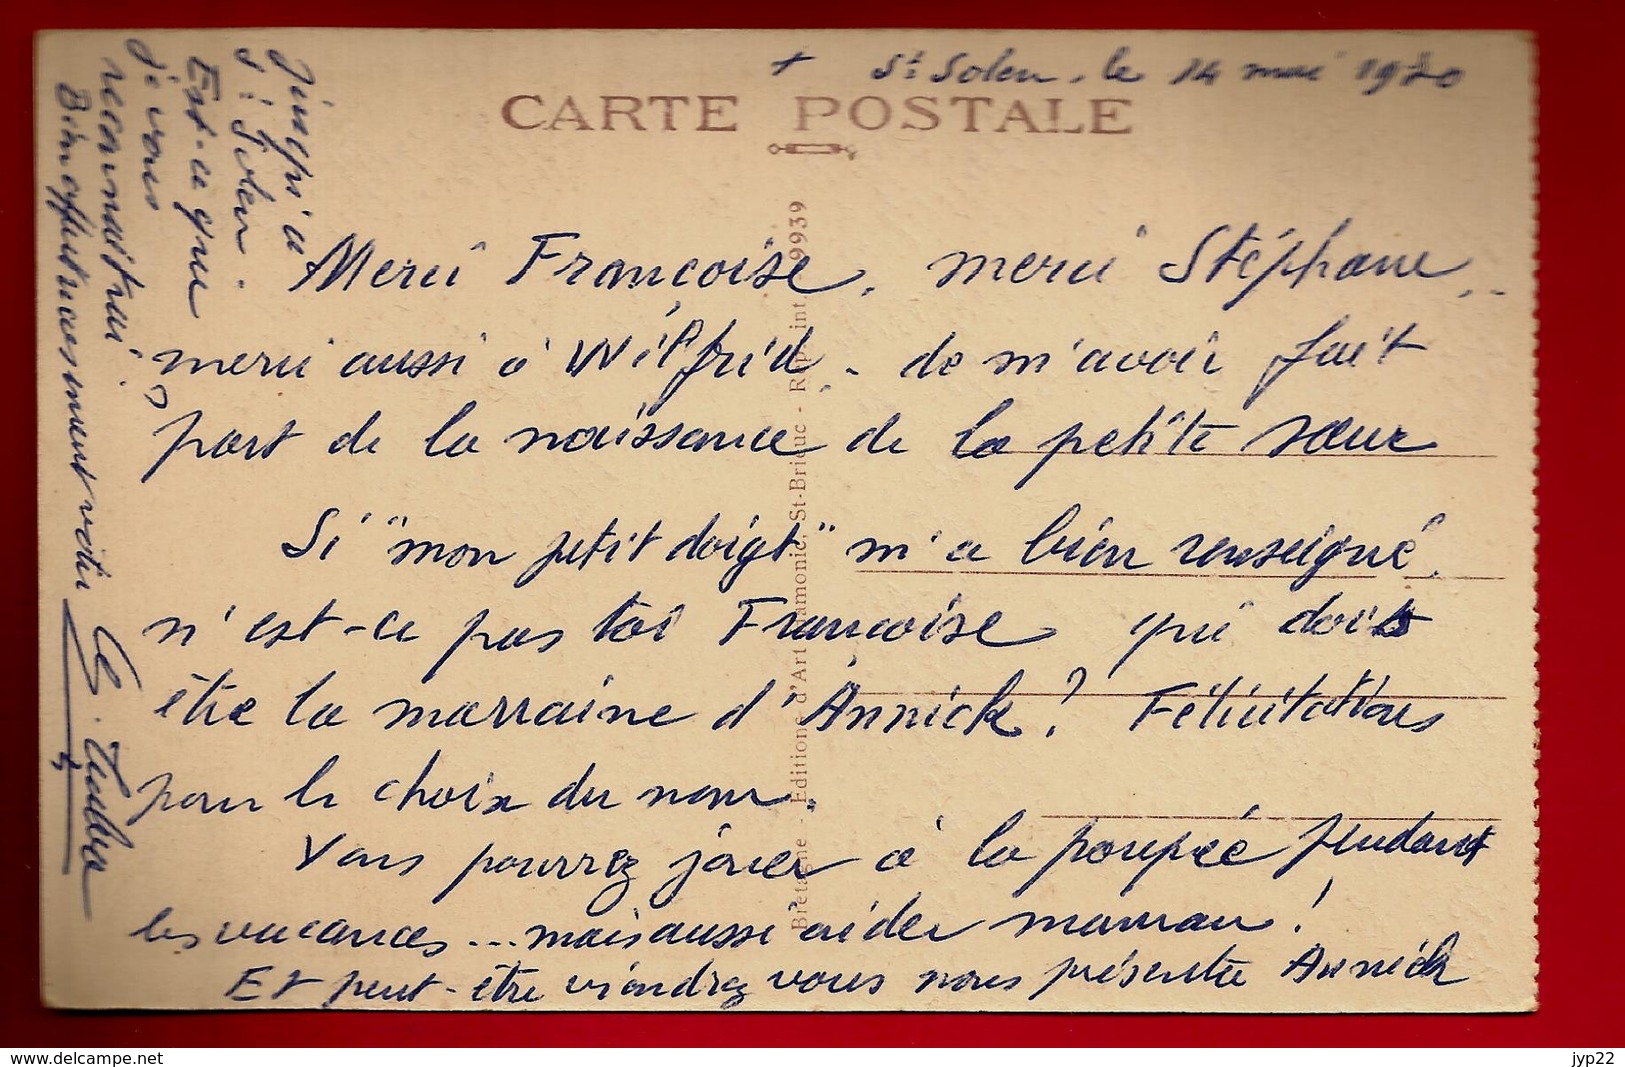 + St Solen, le 14 mai 1970
CARTE POSTALE
Merci Françoise, merci Stéphane..
merci aussi à Wilfrid - de m'avoir fait
part de la naissance de la petite sœur
Si "mon petit doigt" m'a bien renseigné,
n'est-ce pas toi Françoise qui dois
être la marraine d'Annick ? Félicitations
pour le choix du nom.
Vous pourrez jouer à la poupée pendant
les vacances... mais aussi aider maman !
Et peut-être viendrez vous nous présenter Annick
Jusqu'à
St Solen.
Est-ce que
je vous
reconnaîtrai ?
Bien affectueusement vôtre
Bretagne - Editions d'Art Jamonic, St-Brieuc - Rep. int. 9939
www.delcampe.net
jyp22